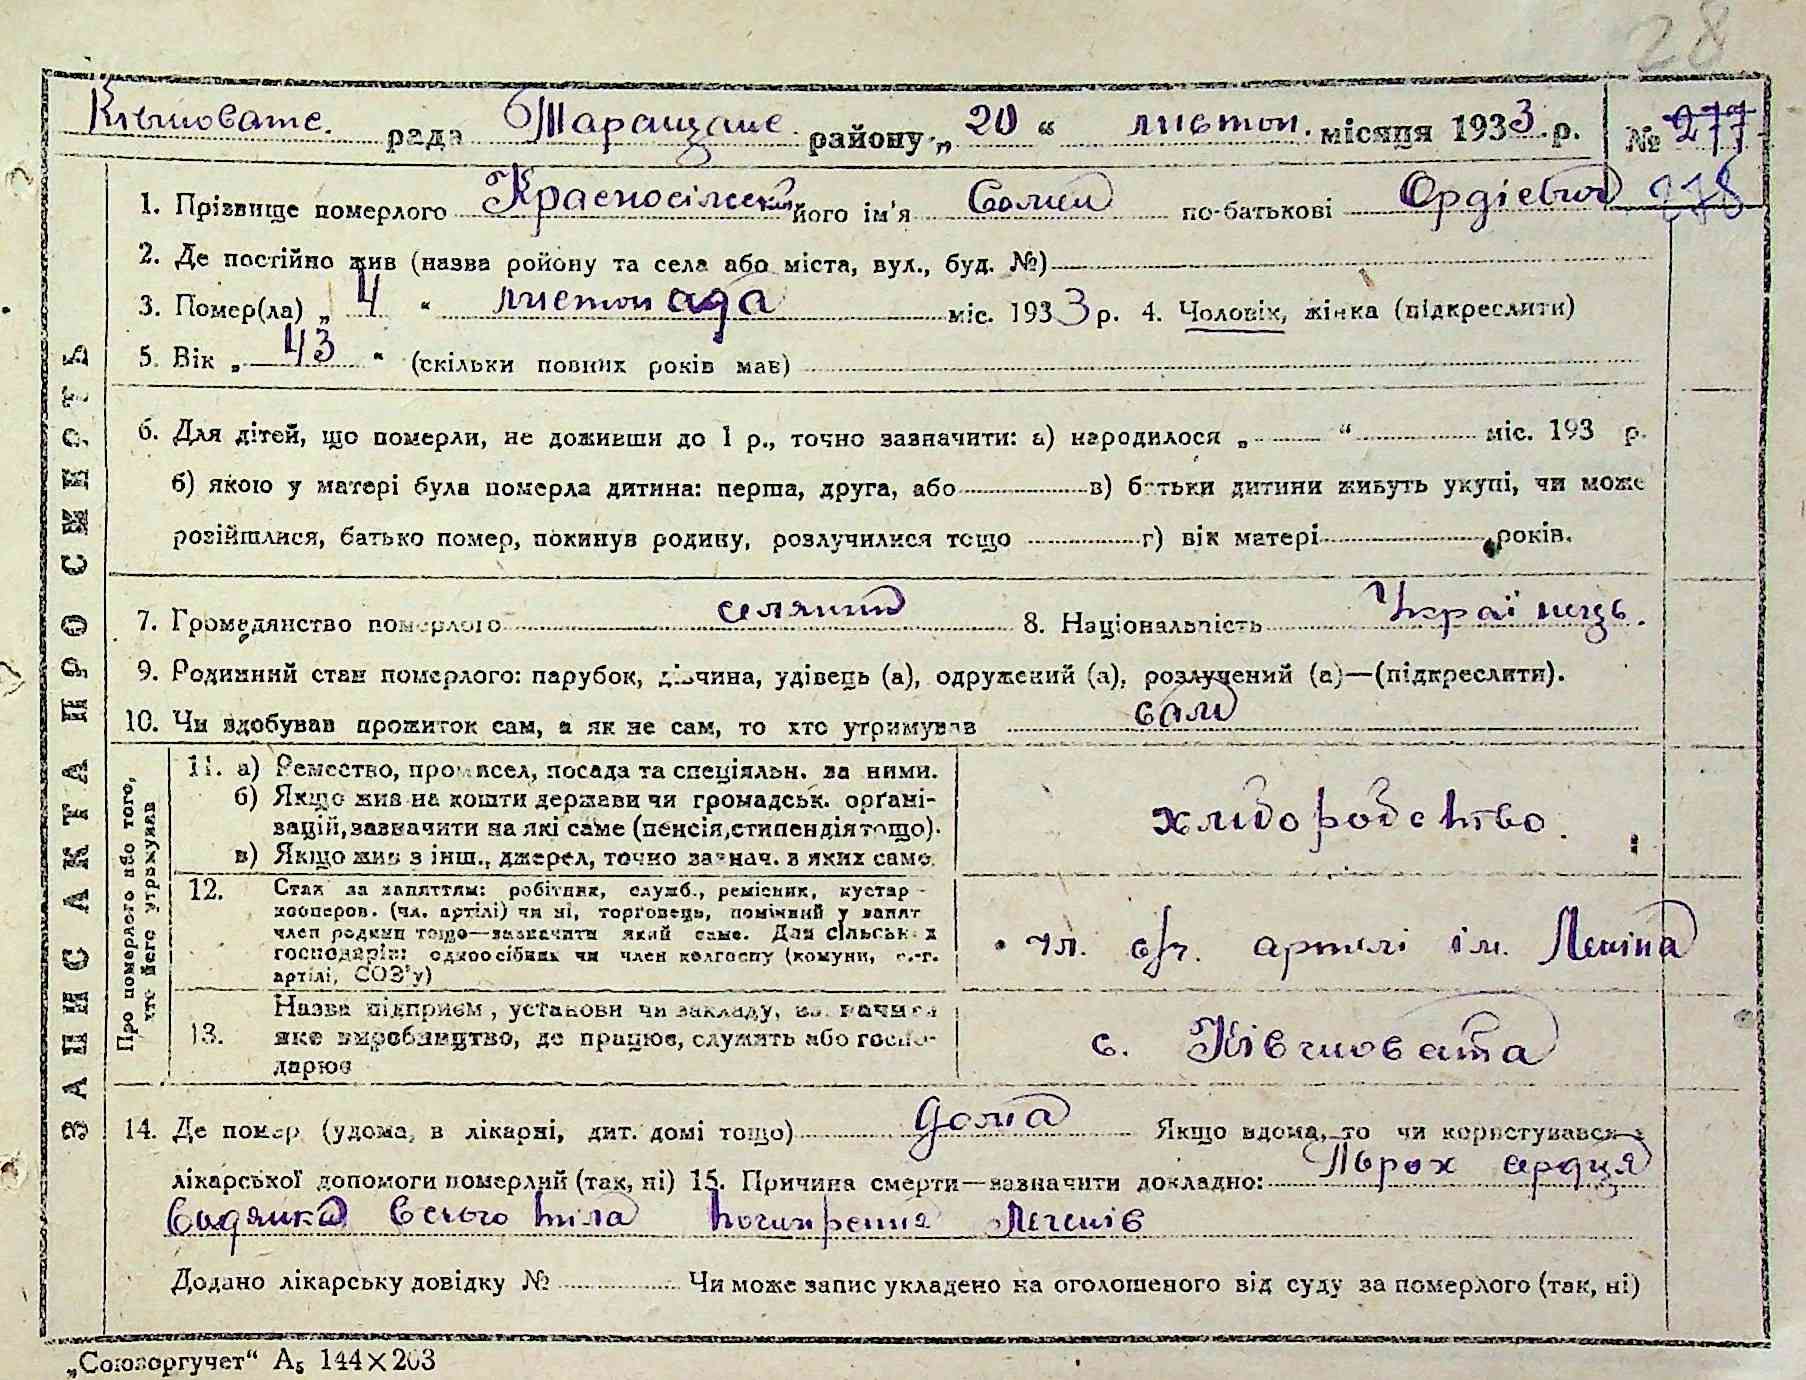 28
Ківшовате. рада Таращане. району „ 20 “ листоп. місяця 1933 р. № 277
278
1. Прізвище померлого Красносілський його ім'я по-батькові
2. Де постійно жив (назва ройону та села або міста, вул., буд. №)
3. Помер(ла) „ 4 “ листопада міс. 1933 р. 4. Чоловік, жінка (підкреслити)
5. Вік „ 43 “ (скільки повних років мав)
6. Для дітей, що померли, не доживши до 1 р., точно зазначити: а) народилося „ “ міс. 193 р.
б) якою у матері була померла дитина: перша, друга, або в) батьки дитини живуть укупі, чи може
розійшлися, батько помер, покинув родину, розлучилися тощо г) вік матері років.
7. Громадянство померлого селянин 8. Національність Українець.
9. Родинний стан померлого: парубок, дівчина, удівець (а), одружений (а), розлучений (а)—(підкреслити).
10. Чи здобував прожиток сам, а як не сам, то хто утримував сам
ЗАПИС АКТА ПРО СМЕРТЬ
Про померлого або того,
хто його утримував
11. а) Ремество, промисел, посада та спеціяльн. за ними.
б) Якщо жив на кошти держави чи громадськ. органі-
зацій, зазначити на які саме (пенсія, стипендія тощо).
в) Якщо жив з інш., джерел, точно зазнач. з яких саме.
хлиборобство.
12. Стан за заняттям: робітник, служб., ремісник, кустар
кооперов. (чл. артілі) чи ні, торговець, помічний у занят
член родини тощо—зазначити який саме. Для сільськ х
господарів: одноосібник чи член колгоспу (комуни, с.-г.
артілі, СОЗ'у)
чл. с/г. артілі ім. Леніна
13. Назва підприєм., установи чи закладу, зазначися
яке виробництво, де працює, служить або госпо-
дарює
с. Ківшовата
14. Де помер (удома, в лікарні, дит. домі тощо) дома Якщо вдома, то чи користувався з
лікарської допомоги померлий (так, ні) 15. Причина смерти—зазначити докладно: Порох сердця
водянка всього тіла легенів
Додано лікарську довідку № Чи може запис укладено на оголошеного від суду за померлого (так, ні)
„Союзоргучет“ А5 144×203